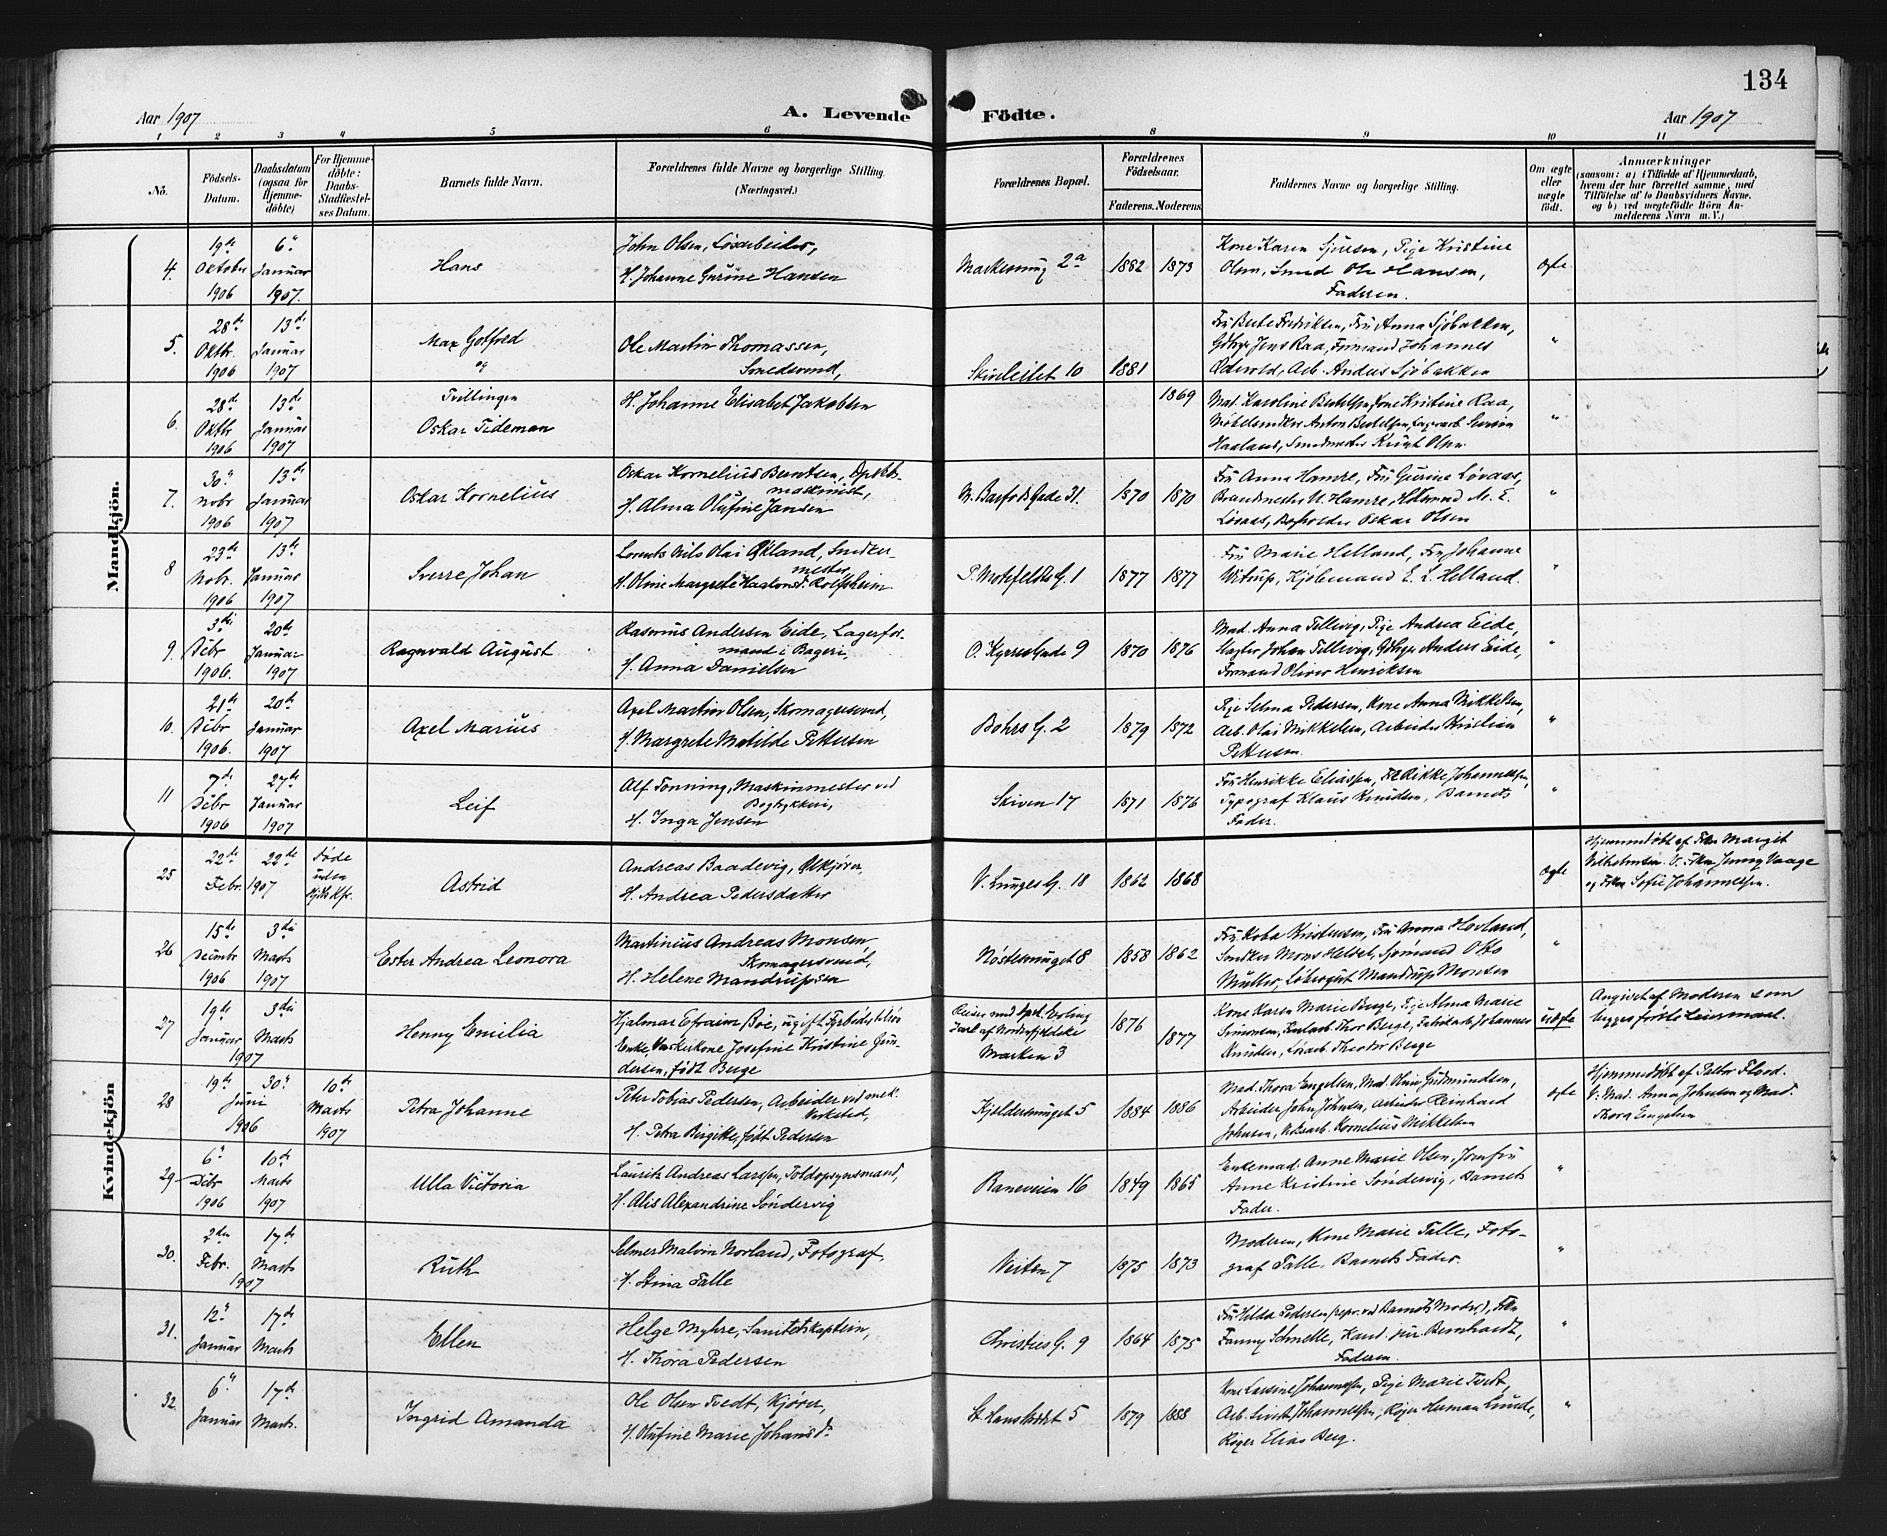 134
Aar 1907
A. Levende Födte.
Aar 1907
1 2 3 4 5 6 8 9 10 11
No.
Födsels-Datum.
Daabsdatum (ogsaa for Hjemme-döbte)
For Hjemme-döbte: Daabs-Stadfæstel-ses Datum.
Barnets fulde Navn.
Forældrenes fulde Navne og borgerlige Stilling. (Næringsvei.)
Forældrenes Bopæl.
Forældrenes Födselsaar.
Faderens. Moderens.
Faddernes Navne og borgerlige Stilling.
Om ægte eller uægte födt.
Anmærkninger
(saasom: a) i Tilfælde af Hjemmedaab,
hvem der har forrettet samme, med
Tilföielse af to Daabsvidners Navne,
og b) ved uægtefödte Börn An-
melderens Navn m. V.)
Mandkjön.
4. 19de Oktober 1906
6" Januar 1907.
Hans
John Olsen, Løsarbeider,
H. Johanne Gurine Hansen
Markesmug 2a
1882 1873
Kone Karen Sjursen, Pige Kristine
Olsen, Smed Ole Hansen,
Faderen.
ægte
5. 28de Oktbr. 1906
13de Januar 1907
Max Gotfred
og
Ole Martin Thomassen,
Smedesvend,
Skiveleitet 10
1881
Fru Berte Fredriksen, Fru Anna Sjøbakken,
Jens Raa, Formand Johannes
Arb. Anders Sjøbakken
"
6. 28de Oktbr 1906
13de Januar 1907
Tvillingen
Oskar Tideman
H. Johanne Elisabet Jakobsen
1869
Mad. Karoline Bertelsen, Kone Kristine Raa,
Anton Bertelsen,
Haaland, Smedmester Knut Olsen
"
7. 30" Nobr 1906
13de Januar 1907
Oskar Kornelius
Oskar Kornelius Berntsen,
maskinist,
H. Alma Olufine Jansen
31.
1870 1870
Fru Anna Hamre, Fru Gurine Løvaas,
Brandmester N. Hamre, M. E.
Løvaas, Oskar Olsen
"
8 23de Nobr. 1906
13de Januar 1907
Sverre Johan
Lorents Nils Olai Økland, Snedker-
mester,
H. Oline Margrete Haaionsd. Rolfsheim
P. Motzfeldts G. 1
1877 1877
Fru Marie Helland, Fru Johanne
Witrup, Kjøbmand E. L. Helland.
"
9. 3die Dcbr 1906.
20de Januar 1907
Ragnvald August
Rasmus Andersen Eide, Lagerfor-
mand i Bageri,
H. Anna Danielsen
O. Kyrresgade 9
1870 1876
Mad. Anna Tillevig, Pige Andrea Eide,
Slagter Johan Tillevig, Anders Eide,
Formand Oliver Henriksen
"
10. 21de Dcbr 1906.
20de Januar 1907
Axel Marius
Axel Martin Olsen, Skomagersvend,
H. Margrete Matilde Pettersen
Bohrs G. 2
1879 1872
Pige Selma Pedersen, Kone Anna Mikkelsen,
Arb. Olai Mikkelsen, Arbeider Kristian
Pettersen.
"
11 7de Dcbr 1906
27de Januar 1907
Leif
Alf Tonning, Maskinmester ved
Bogtrykkeri,
H. Inga Jensen
Skiven 17
1871 1876
Fru Henrikke Eliassen, Frk Rikke Johannessen,
Typograf Klaus Knudsen, Barnets
Fader.
"
Kvindekjön
25 22de Febr. 1907
22de
Føde
uden
Astrid
Andreas Baadevig, Vekjører,
H. Andrea Pedersdatter
V. Lunges G. 18
1862 1868
ægte
Hjemmedøbt af Frkn Margit
Vilhelmsen. V. Frkn Jenny Vaage
og Frkn Sofie Johannessen.
26 15de Decmbr 1906
3die Marts 1907
Ester Andrea Leonora
Martinius Andreas Monsen,
Skomagersvend,
H. Helene Mandrupsen
Nøstesmuget 8
1858 1862
Fru Koba Kristensen, Fru Anna Hovland,
Snedker Mons Helset, Sjømand Otto
Müller, Løbergut Mandrup Monsen
"
27 19de Januar 1907
3die Marts
Henny Emilia
Hjalmar Efraim Boe, ugift Fyrbøder,
Enke, Vaskerkone Josefine Kristine Gun-
dersen, født Berge
Reiser med Erling
Jarl af Nordenfjeldske
Marken 3
1876 1877
Kone Karen Marie Berge, Pige Alma Marie
Simonsen, Thor Berge, Johannes
Knudsen, Løsarb. Theodor Berge
uægte
Angivet af Moderen som
begges første Leiermaal.
28 19de Juni 1906
30"
10de Marts 1907
Petra Johanne
Peter Tobias Pedersen, Arbeider ved mek.
Verksted,
H. Petra Birgitte, født Pedersen
Kjeldersmuget 5
1884 1886
Mad. Thora Engelsen, Mad. Oline Gudmundsen,
Arbeider John Johnsen, Arbeider Reinhard
Johnsen, Kornelius Mikkelsen
ægte
Hjemmedøbt af Pastor Flood.
V. Mad. Anna Johnsen og Mad.
Thora Engelsen
29 6" Dcbr 1906
10de Marts 1907
Ulla Victoria
Lauritz Andreas Larssen, Toldopsynsmand,
H. Alis Alexandrine Søndervig
Baneveien 16
1849 1865
Enkemad. Anne Marie Olsen, Jomfru
Anne Kristine Søndervig, Barnets
Fader.
"
30. 2den Febr. 1907
17de Marts
Ruth
Selmer Malvin Norland, Fotograf,
H. Stina Talle
Veiten 7
1875 1873
Moderen, Kone Marie Talle, Foto-
graf Talle, Barnets Fader.
"
31. 12" Januar
17de Marts
Ellen
Helge Myhre, Sanitetskaptein,
H. Thora Pedersen
Christies G. 9
1864 1875
Fru Hilda Pedersen (repr. ved Barnets Moder), Frkn
Fanny Schnelle, Kand. jur. Bernhardt,
Faderen.
"
32. 6" Januar
17de Marts.
Ingrid Amanda
Ole Olsen Tvedt, Kjører,
H. Olufine Marie Johansd.
St. Hansstrædet 5
1879 1888
Kone Larsine Johannessen, Pige Marie Tvedt,
Arb. Sivert Johannessen, Herman Lunde,
Elias Berg.
"